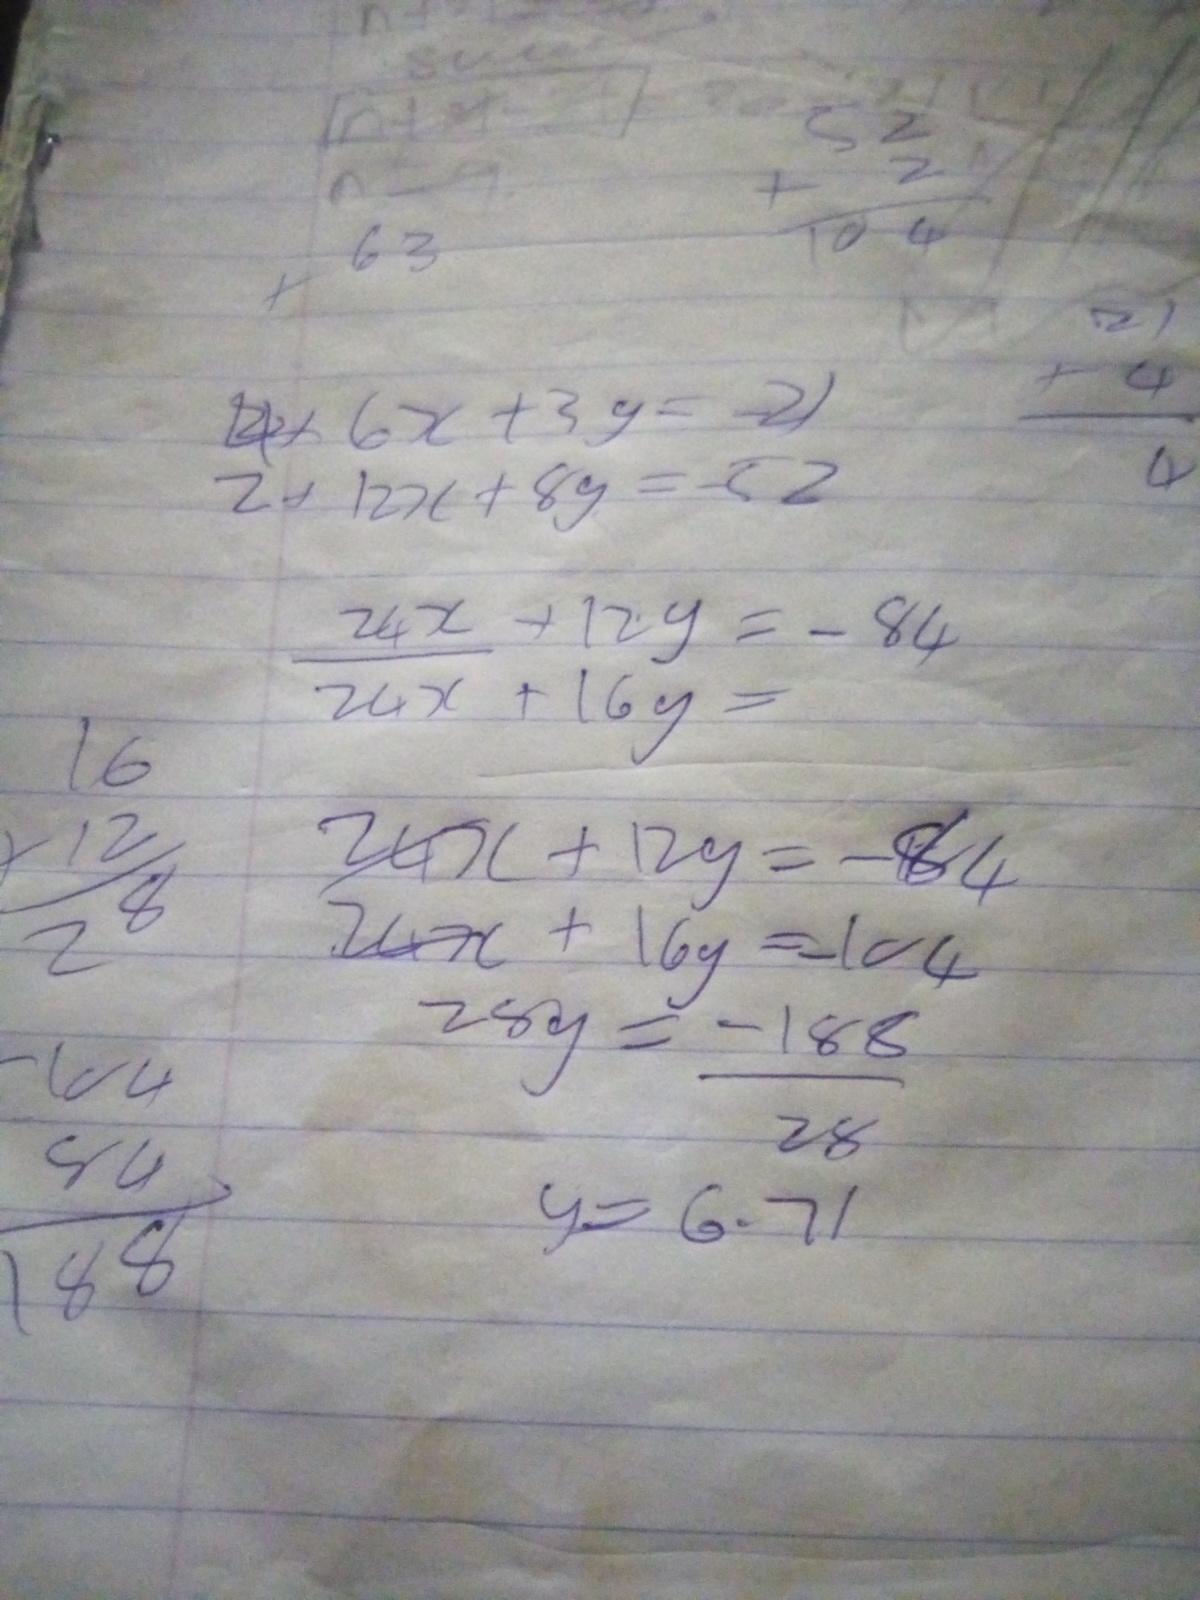 52
+ 2
104
63
+
21
+ 4
4
6x + 3y = -21
2+ 12x + 8y = -52
24x + 12y = -84
24x + 16y =
16
+ 12
28
24x + 12y = -84
24x + 16y = -104
28y = -188
28
y = 6.71
-104
84
188